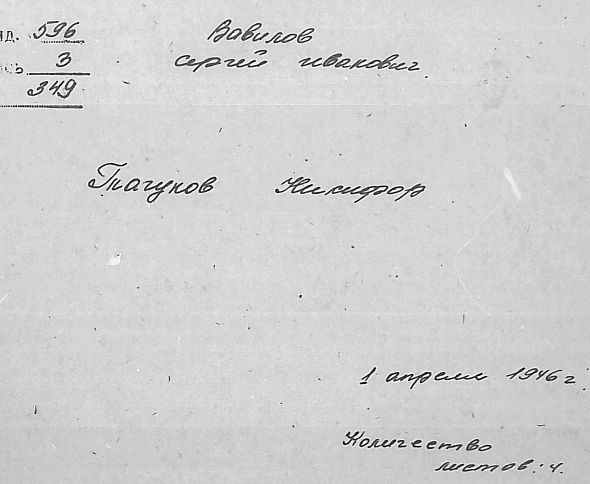 нд. 596
сь 3
349
Вавилов
Сергей Иванович.
Никифор
1 апреля 1946 г.
Количество
листов: 4.